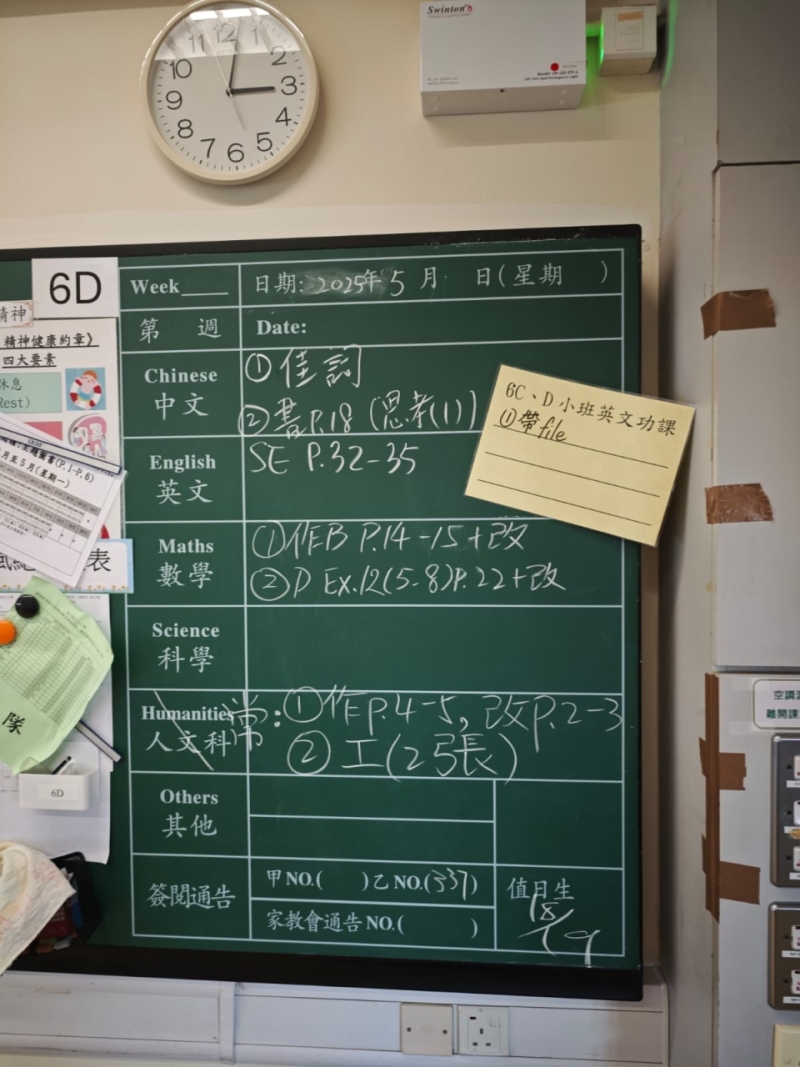 12
1
2
3
4
5
6
7
8
9
10
11
Swinton
6D
Week
日期: 2025年 5 月 日(星期 )
第 週
Date:
Chinese
中文
① 佳詞
② 書 P.18 (思考(1))
English
英文
SE P.32-35
6C、D 小班英文功課
① 帶 file
Maths
數學
① 作B P.14-15+改
② P Ex.12(5-8)P.22+改
Science
科學
Humanities
人文科
常: ① 作 P.4-5, 改 P.2-3
② 工(2張)
Others
其他
簽閱通告
甲 NO.( ) 乙 NO.(337)
家教會通告 NO.( )
值日生
18/19
精神
精神健康約章》
四大要素
休息
Rest)
(P.1-P.6)
月至5月(星期一)
表
隊
6D
空調
離開課